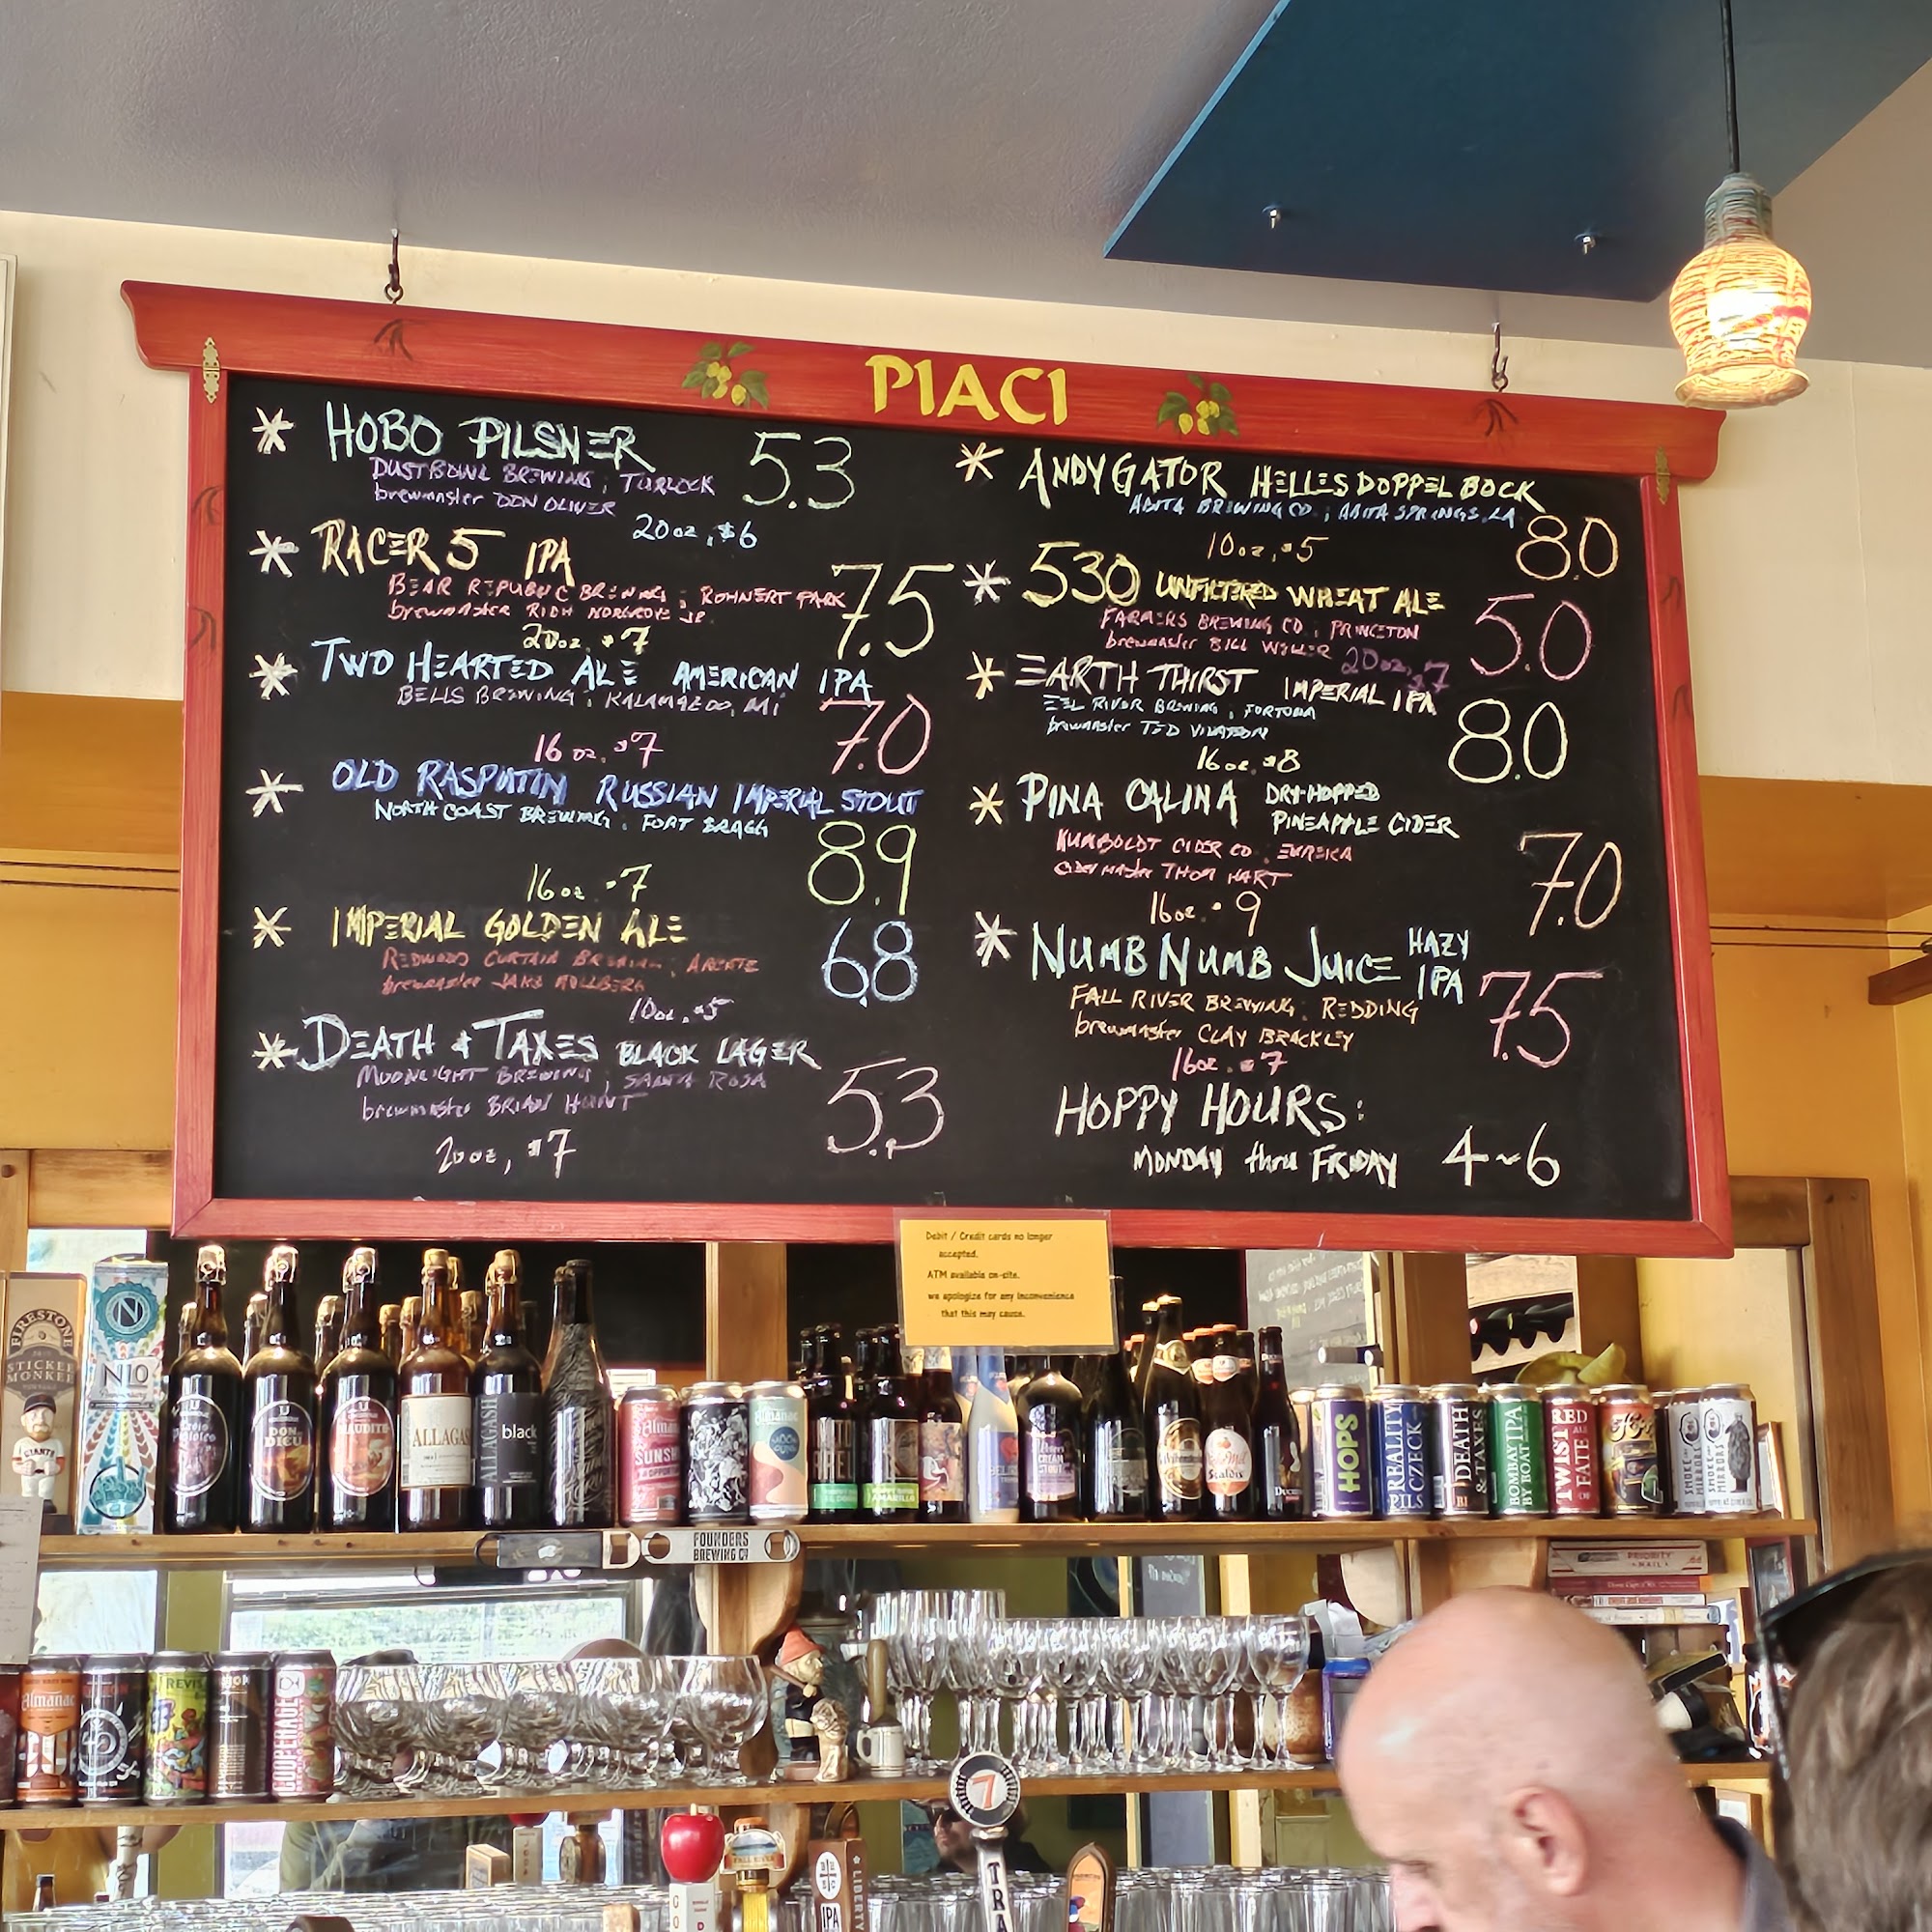 PIACI
* HOBO PILSNER 5.3
DUST BOWL BREWING, TURLOCK
brewmaster DON OLIVER
20oz, $6
* RACER 5 IPA
BEAR REPUBLIC BREWING, ROHNERT PARK 7.5
brewmaster RICH NORGROVE JR.
20oz, $7
* TWO HEARTED ALE AMERICAN IPA
BELLS BREWING, KALAMAZOO, MI 7.0
16 oz, $7
* OLD RASPUTIN RUSSIAN IMPERIAL STOUT
NORTH COAST BREWING, FORT BRAGG
8.9
16oz, $7
* IMPERIAL GOLDEN ALE 6.8
REDWOOD CURTAIN BREWING, ARCATA
brewmaster JAKE
10oz, $5
* DEATH & TAXES BLACK LAGER
MOONLIGHT BREWING, SANTA ROSA
brewmaster BRIAN HUNT 5.3
20oz, $7
* ANDYGATOR HELLES DOPPEL BOCK
ABITA BREWING CO., ABITA SPRINGS, LA
10oz, $5 8.0
* 530 UNFILTERED WHEAT ALE
FARMERS BREWING CO, PRINCETON 5.0
brewmaster BILL WELLER
20oz, $7
* EARTH THIRST IMPERIAL IPA
EEL RIVER BREWING, FORTUNA
brewmaster TED VIVATSON 8.0
16oz, $8
* PINA CALINA DRY-HOPPED
PINEAPPLE CIDER
HUMBOLDT CIDER CO, EUREKA
cider master THOM HART 7.0
16oz, 9
* NUMB NUMB JUICE HAZY
IPA
FALL RIVER BREWING, REDDING 7.5
brewmaster CLAY BRACKLEY
16oz, $7
HOPPY HOURS:
MONDAY thru FRIDAY 4~6
Debit / Credit cards no longer
accepted.
ATM available on-site.
we apologize for any inconvenience
that this may cause.
FIRESTONE
STICKEE
MONKEE
GIANTS
N
N10
DON
DE DIEU
MAUDITE
ALLAGASH
ALLAGASH
black
Almanac
SUNSHINE
Almanac
CREAM
STOUT
HOPS
REALITY
CZECK
PILS
DEATH
& TAXES
BOMBAY IPA
BY BOAT
RED
TWIST
FATE
SMOKE
MIRRORS
FOUNDERS
BREWING CO
PRIORITY
MAIL
Almanac
REVISION
COUPERAGE
7
TRA
FALL RIVER
IPA
LIBERTY